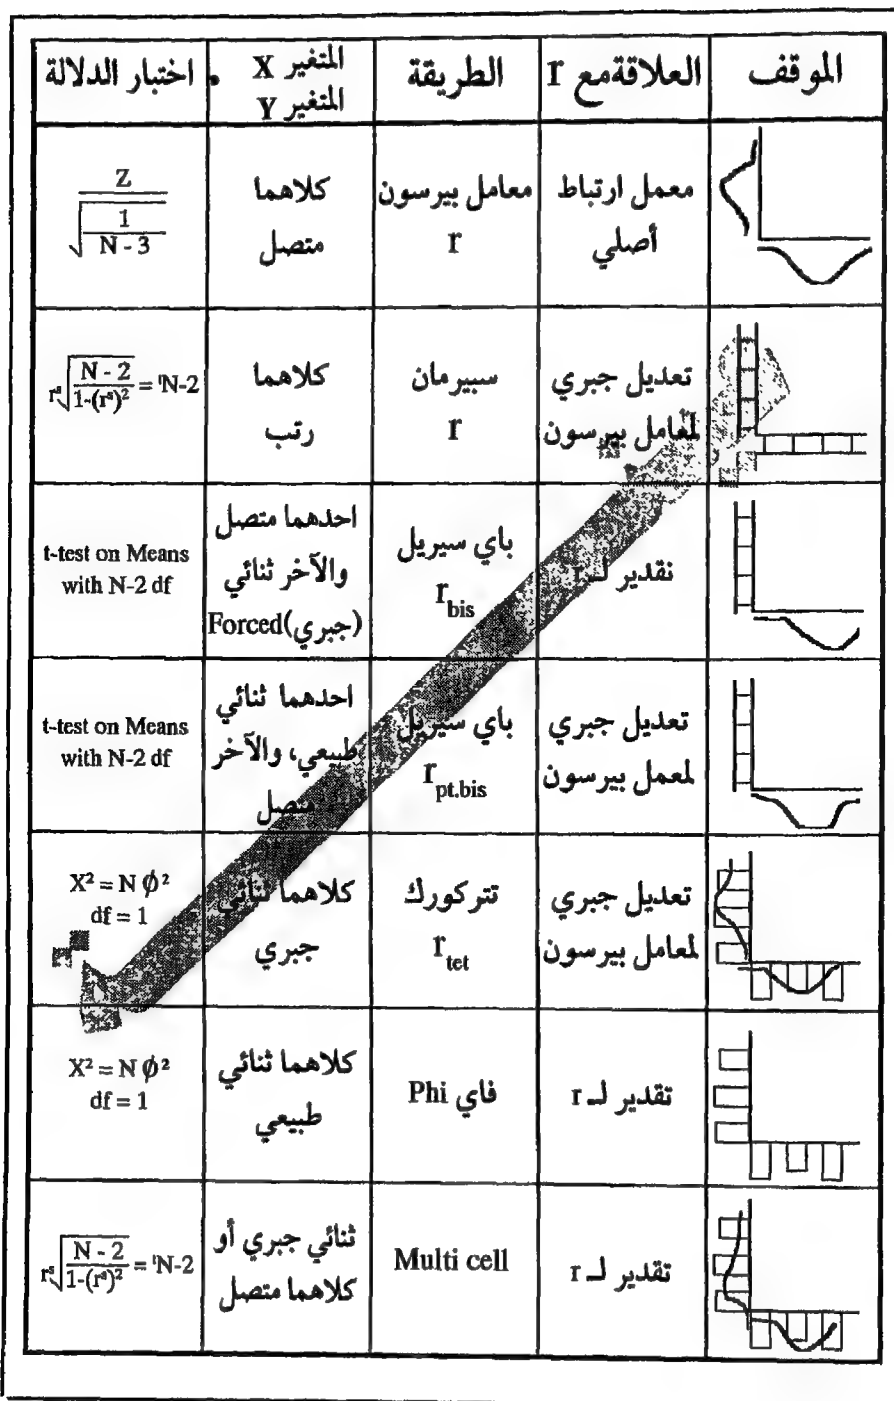 الموقف
العلاقة مع r
الطريقة
المتغير X
المتغير Y
اختبار الدلالة
معمل ارتباط
أصلي
معامل بيرسون
r
كلاهما
متصل
Z
1
N - 3
تعديل جبري
لمعامل بيرسون
سبيرمان
r
كلاهما
رتب
rˢ√(N - 2 / 1-(rˢ)²) = ᵗN-2
نقدير لـ r
باي سيريل
r bis
احدهما متصل
والآخر ثنائي
(جبري)Forced
t-test on Means
with N-2 df
تعديل جبري
لمعمل بيرسون
باي سيريل
r pt.bis
احدهما ثنائي
طبيعي، والآخر
متصل
t-test on Means
with N-2 df
تعديل جبري
لمعامل بيرسون
تتركورك
r tet
كلاهما ثنائي
جبري
X² = N ϕ²
df = 1
تقدير لـ r
فاي Phi
كلاهما ثنائي
طبيعي
X² = N ϕ²
df = 1
تقدير لـ r
Multi cell
ثنائي جبري أو
كلاهما متصل
rˢ√(N - 2 / 1-(rˢ)²) = ᵗN-2